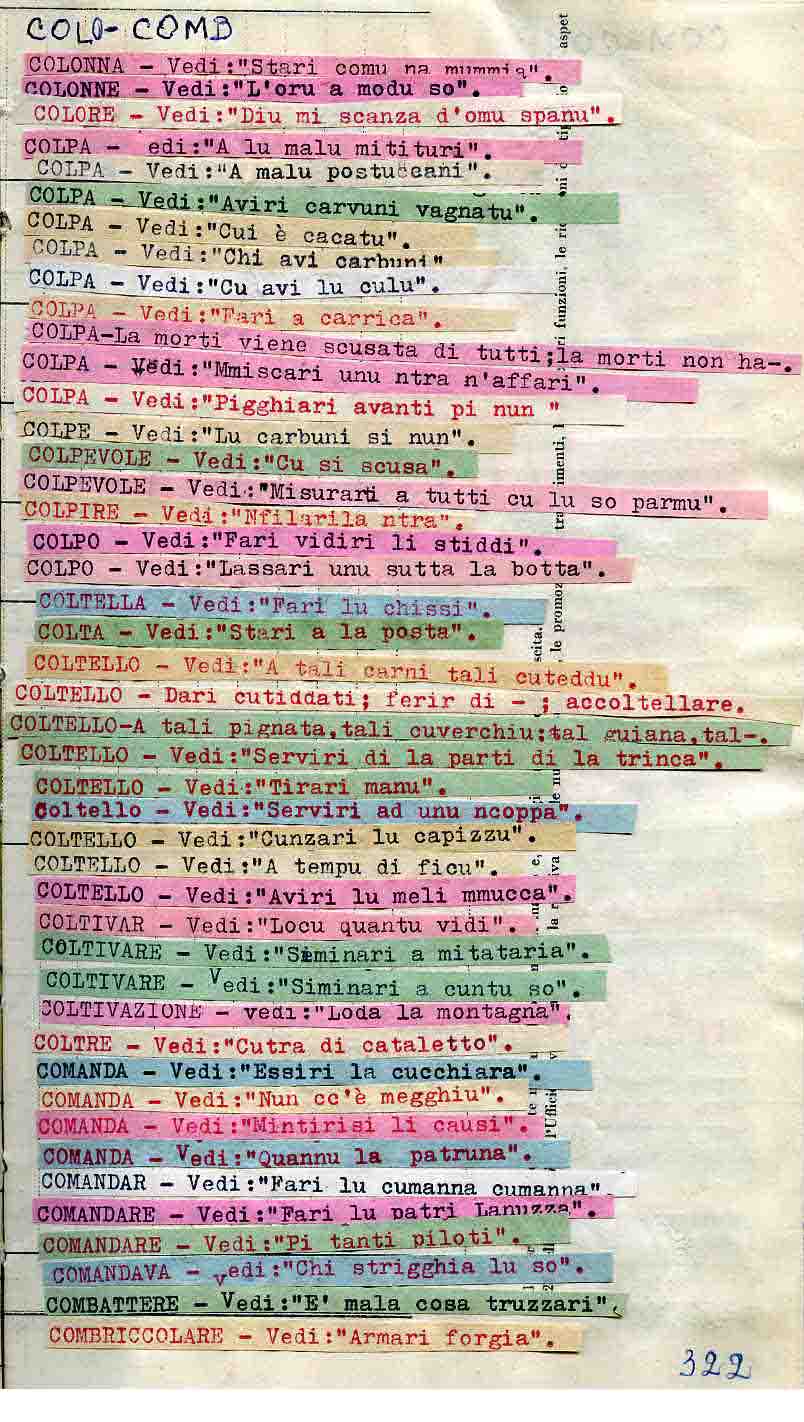 COLO-COMB
COLONNA - Vedi:"Stari comu na mummia".
COLONNE - Vedi:"L'oru a modu so".
COLORE - Vedi:"Diu mi scanza d'omu spanu".
COLPA - edi:"A lu malu mitituri".
COLPA - Vedi:"A malu postuceani".
COLPA - Vedi:"Aviri carvuni vagnatu".
COLPA - Vedi:"Cui è cacatu".
COLPA - Vedi:"Chi avi carbuni"
COLPA - Vedi:"Cu avi lu culu".
COLPA - Vedi:"Fari a carrica".
COLPA-La morti viene scusata di tutti;la morti non ha-.
COLPA - Vedi:"Mmiscari unu ntra n'affari".
COLPA - Vedi:"Pigghiari avanti pi nun "
COLPE - Vedi:"Lu carbuni si nun".
COLPEVOLE - Vedi:"Cu si scusa".
COLPEVOLE - Vedi:"Misurari a tutti cu lu so parmu".
COLPIRE - Vedi:"Nfilarila ntra".
COLPO - Vedi:"Fari vidiri li stiddi".
COLPO - Vedi:"Lassari unu sutta la botta".
COLTELLA - Vedi:"Fari lu chissi".
COLTA - Vedi:"Stari a la posta".
COLTELLO - Vedi:"A tali carni tali cuteddu".
COLTELLO - Dari cutiddati; ferir di - ; accoltellare.
COLTELLO-A tali pignata,tali cuverchiu;tal guiana,tal-.
COLTELLO - Vedi:"Serviri di la parti di la trinca".
COLTELLO - Vedi:"Tirari manu".
Coltello - Vedi:"Serviri ad unu ncoppa".
COLTELLO - Vedi:"Cunzari lu capizzu".
COLTELLO - Vedi:"A tempu di ficu".
COLTELLO - Vedi:"Aviri lu meli mmucca".
COLTIVAR - Vedi:"Locu quantu vidi".
COLTIVARE - Vedi:"Siminari a mitataria".
COLTIVARE - Vedi:"Siminari a cuntu so".
COLTIVAZIONE - vedi:"Loda la montagna".
COLTRE - Vedi:"Cutra di cataletto".
COMANDA - Vedi:"Essiri la cucchiara".
COMANDA - Vedi:"Nun cc'è megghiu".
COMANDA - Vedi:"Mintirisi li causi".
COMANDA - Vedi:"Quannu la patruna".
COMANDAR - Vedi:"Fari lu cumanna cumanna".
COMANDARE - Vedi:"Fari lu patri Lanuzza".
COMANDARE - Vedi:"Pi tanti piloti".
COMANDAVA - vedi:"Chi strigghia lu so".
COMBATTERE - Vedi:"E' mala cosa truzzari".
COMBRICCOLARE - Vedi:"Armari forgia".
322